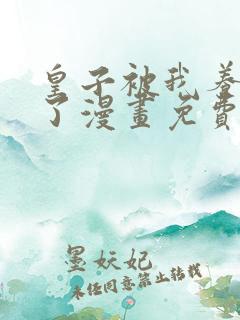 皇子被我养
了漫畫免費
墨妖妃
未经同意禁止转载